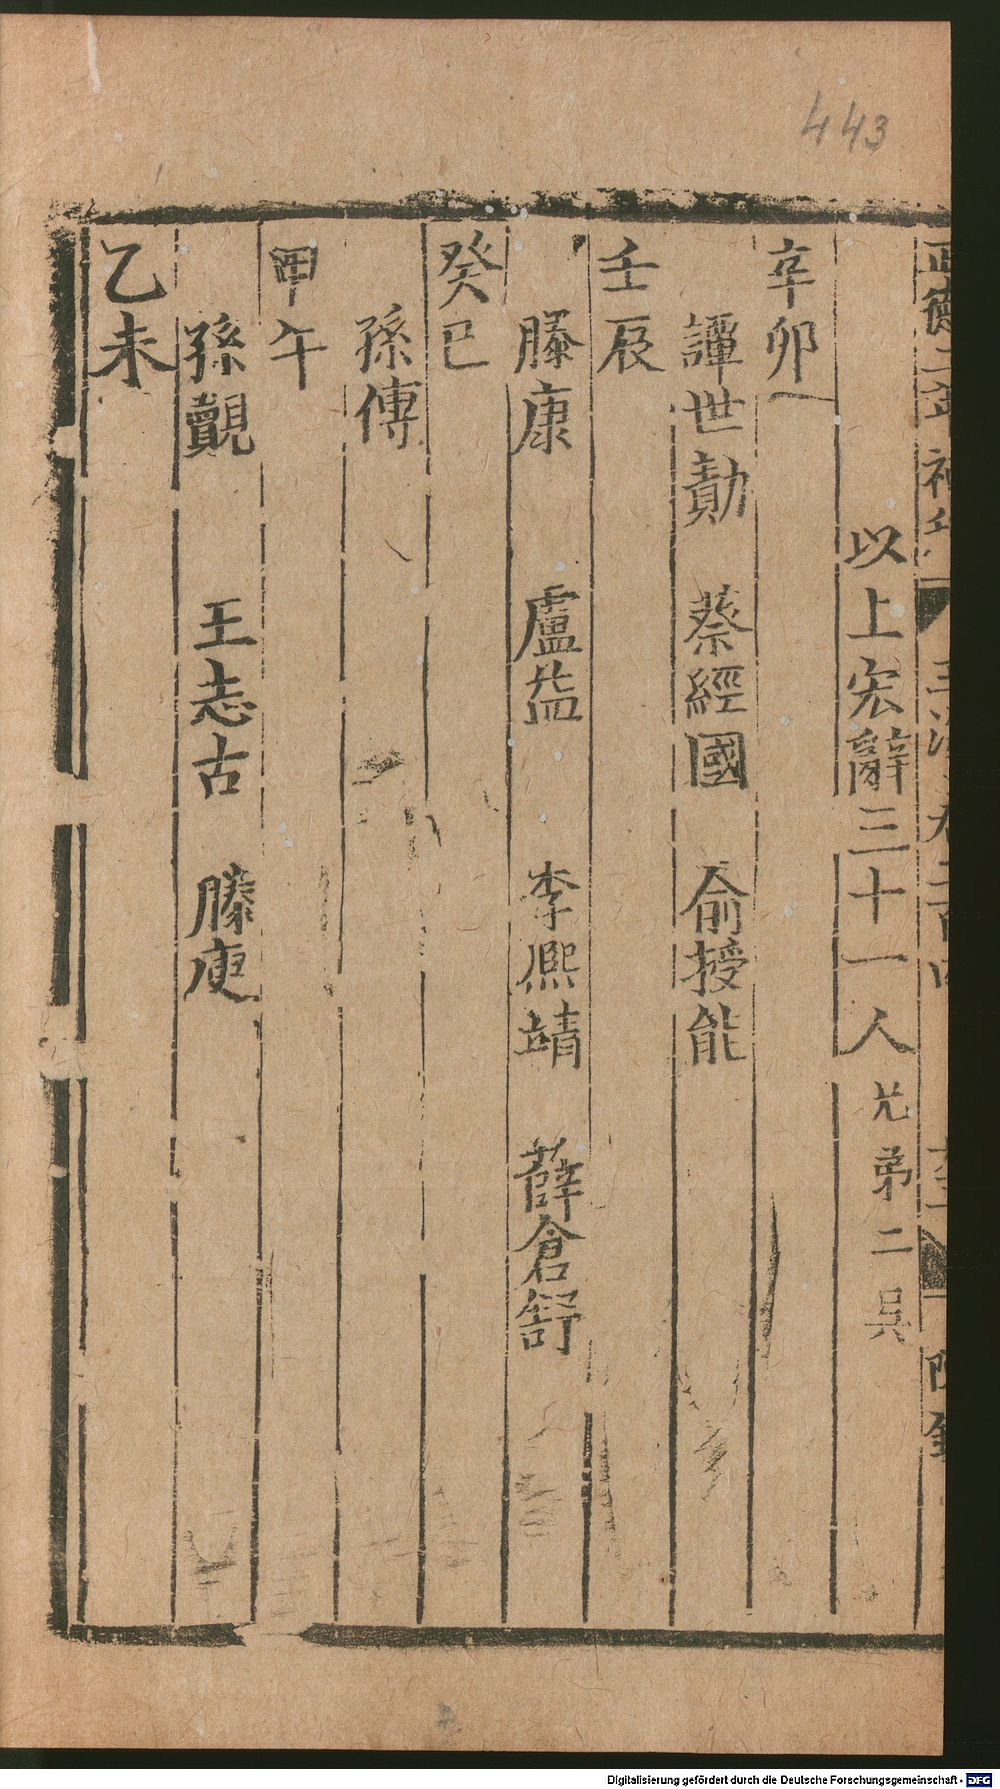 443
正德二年補刊 玉海卷二百四
以上宏辭三十一人 兄弟二吳
辛卯
譚世勣 蔡經國 俞授能
壬辰
滕康 盧益 李熙靖 薛倉舒
癸巳
孫傅
甲午
孫覿 王志古 滕庾
乙未
Digitalisierung gefördert durch die Deutsche Forschungsgemeinschaft - DFG